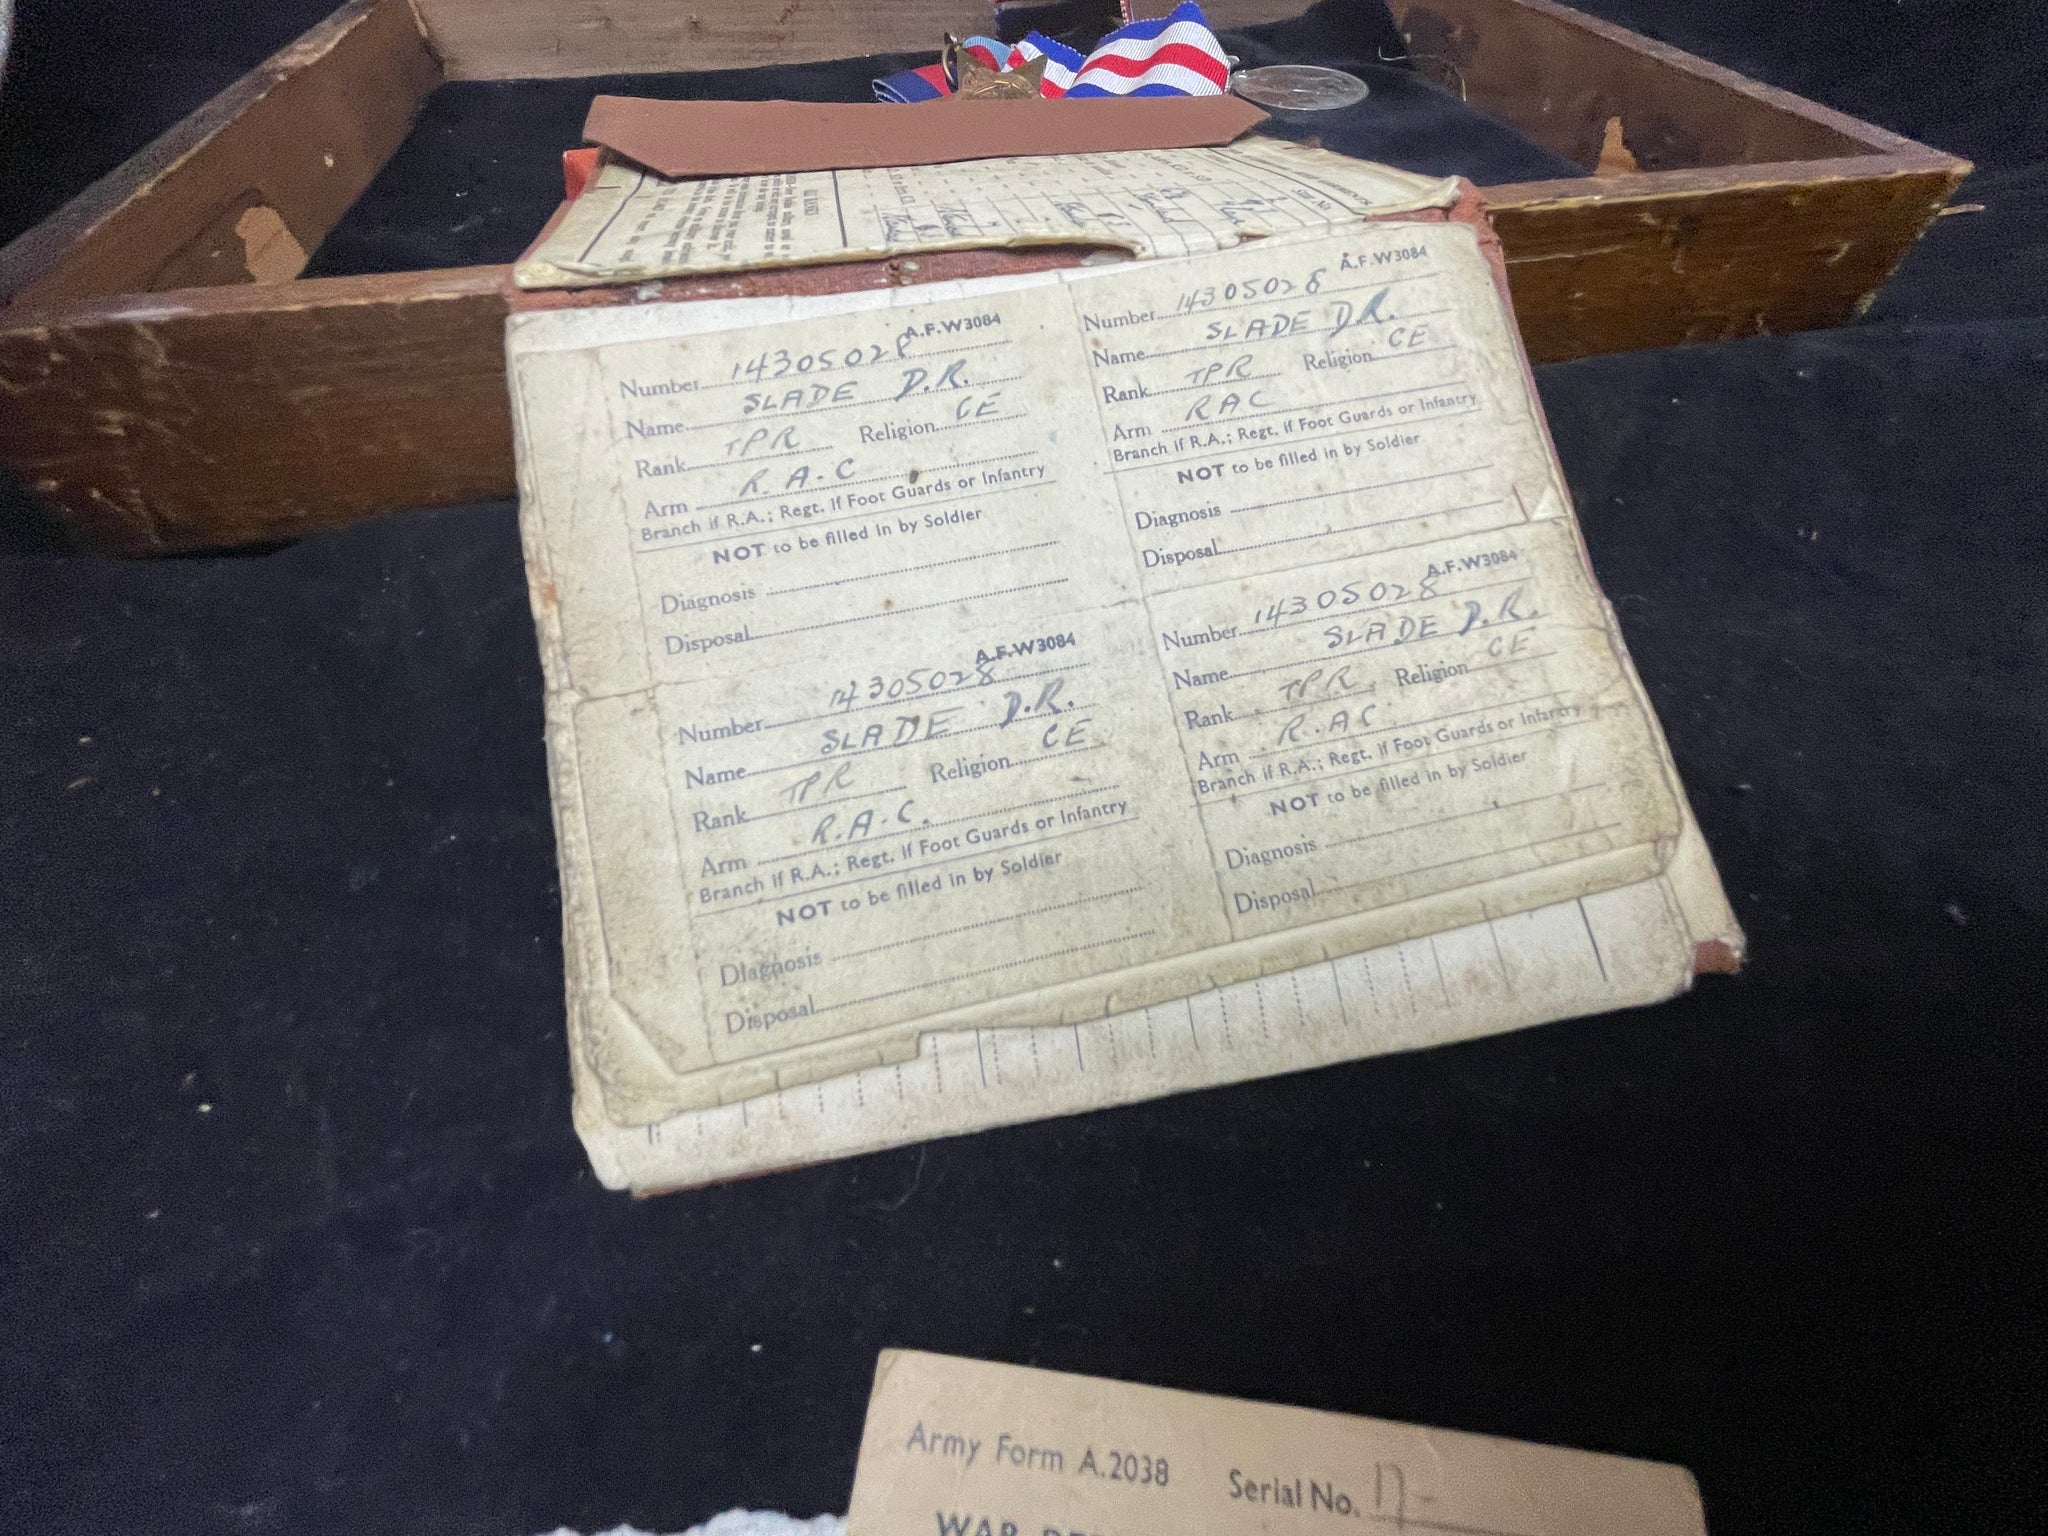 A.F.W3084
Number 14305028
Name SLADE D.R.
Rank TPR Religion CE
Arm R.A.C
Branch if R.A.; Regt. if Foot Guards or Infantry
NOT to be filled in by Soldier
Diagnosis
Disposal
A.F.W3084
Number 14305028
Name SLADE D.R.
Rank TPR Religion CE
Arm RAC
Branch if R.A.; Regt. if Foot Guards or Infantry
NOT to be filled in by Soldier
Diagnosis
Disposal
A.F.W3084
Number 14305028
Name SLADE D.R.
Rank TPR Religion CE
Arm R.A.C.
Branch if R.A.; Regt. if Foot Guards or Infantry
NOT to be filled in by Soldier
Diagnosis
Disposal
A.F.W3084
Number 14305028
Name SLADE D.R.
Rank TPR Religion CE
Arm R.AC.
Branch if R.A.; Regt. if Foot Guards or Infantry
NOT to be filled in by Soldier
Diagnosis
Disposal
Army Form A.2038 Serial No. 17-
WAR